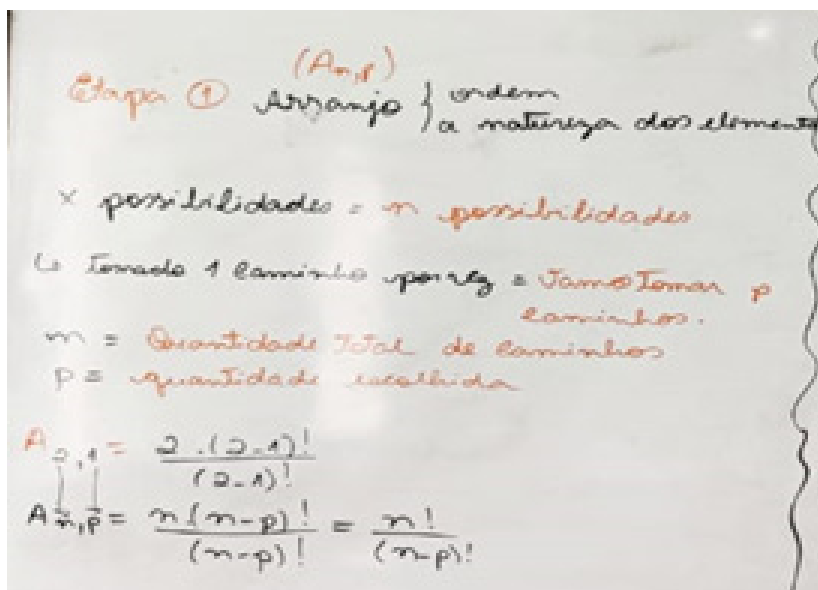 (An,p)
Etapa ① Arranjo } ordem
a natureza dos elemento
x possibilidades = n possibilidades
↳ Tomado 1 caminho por vez = Vamos Tomar p
caminhos.
n = Quantidade Total de caminhos
p = quantidade escolhida
A 2,1 = 2.(2-1)! / (2-1)!
A n,p = n(n-p)! / (n-p)! = n! / (n-p)!